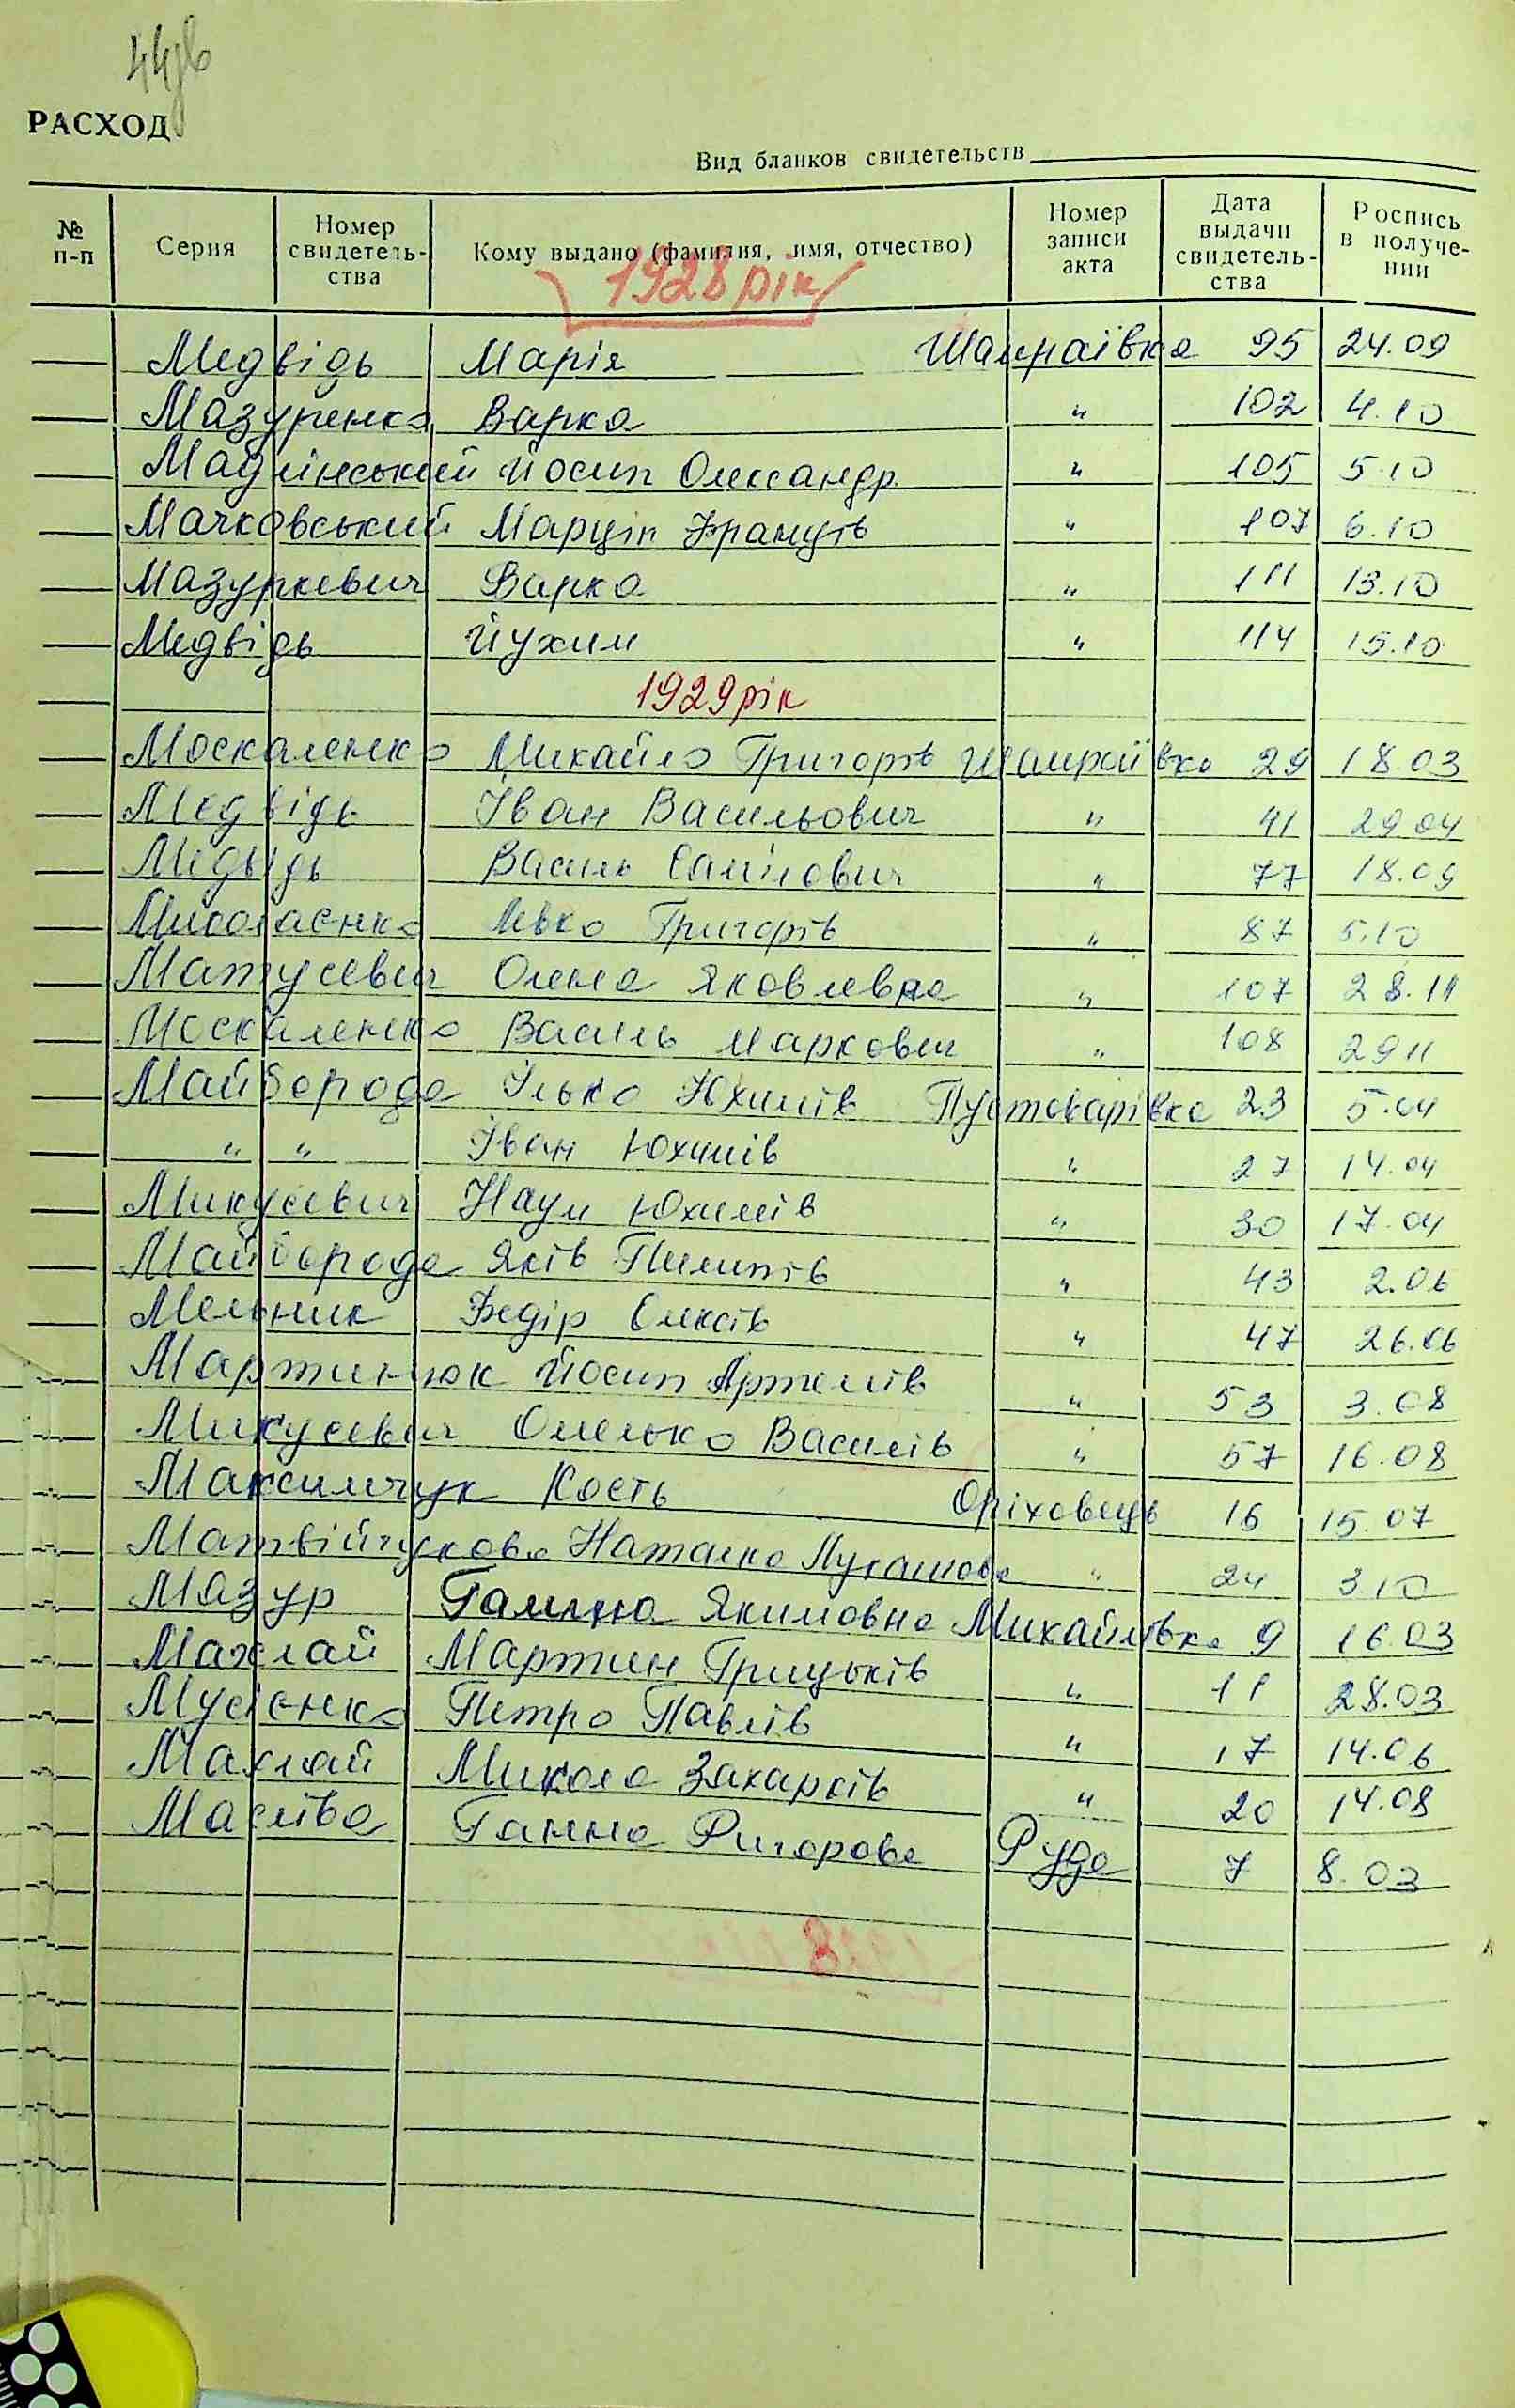 44зв
РАСХОД
Вид бланков свидетельств
№ п-п Серия Номер свидетель-ства Кому выдано (фамилия, имя, отчество) Номер записи акта Дата выдачи свидетель-ства Роспись в получе-нии
1928 рік
Медвідь Марія Шамраївка 95 24.09
Мазуренко Варка " 102 4.10
Мадлінський Йосип Олександр. " 105 5.10
Мачковський Марцін Франців " 107 6.10
Мазуркевич Варка " 111 13.10
Медвідь Йухим " 114 15.10
1929 рік
Москаленко Михайло Григорів Шамраївка 29 18.03
Медвідь Іван Васильович " 41 29.04
Медвідь Василь Самілович " 77 18.09
Миколаєнко Левко Григорів " 87 5.10
Матусевич Олена Яковлевна " 107 28.11
Москаленко Василь Маркович " 108 29 11
Майборода Ілько Юхимів Пустоварівка 23 5.04
" " Іван Юхимів " 27 14.04
Микусевич Наум Юхимів " 30 17.04
Майборода Яків Пилипів " 43 2.06
Мельник Федір Олексів " 47 26.06
Мартинюк Йосип Артемів " 53 3.08
Микусевич Омелько Василів " 57 16.08
Максимчук Кость Оріховець 16 15.07
Матвійчукова Наталка Лукашова " 24 3.10
Мазур Галина Якимовна Михайлівка 9 16.03
Махлай Мартин Грицьків " 11 28.03
Мусієнко Петро Павлів " 17 14.06
Махлай Микола Захарків " 20 14.08
Масліва Ганна Ригорова Руда 7 8.03